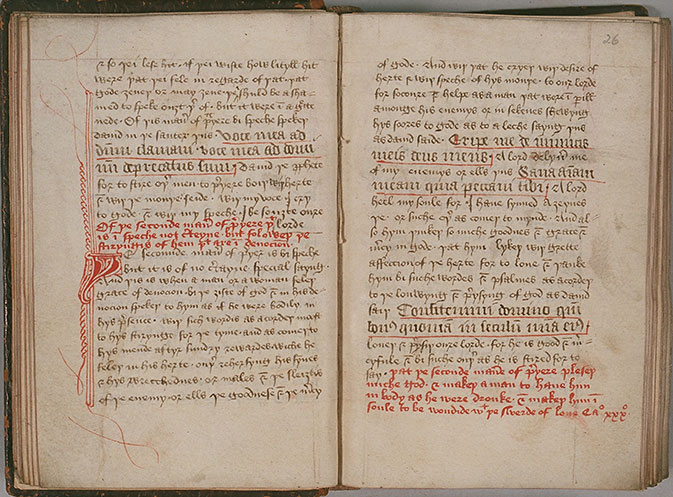 & so þei lefe hit. if þei wiste how lityll hit
were þat þei fele in regarde of þat þat
gode ȝeueþ or may ȝeue þei shuld be a sha
med to speke ouȝt þer of. but it were ī a grete
nede. Of þis maner of prayere bi speche spekeþ
dauid in þe sauter þus Voce mea ad
dnm clamaui. voce mea ad dominū
deprecatus sum. Dauid þe prophete
for to stire oþer men to prayere boþe wiþ herte
& wiþ þe mouþe seide. wiþ my voice I cry
to god. & wiþ my speche. I besouȝte oure
lorde
Of þe seconde maner of prayere þat
is ī speche not certeyne. but folowyþ þe
stiryngis of hem þat are ī deuocion
Þe secounde maner of prayer is bi speche
but it is of no certayne special sayng.
And þis is when a man or a woman feleþ
grace of deuocion. bi þe ȝifte of god. & in his de
uocion spekeþ to hym as if he were bodily in
his presence. wiþ such wordis as acordeþ most
to his stirynge. for þe tyme. and as comeþ to
his mynde aftyr sundry rewardes wiche he
feleþ in his herte. ouþer rehersyng his synes
& his wrecchednes. or males & þe sleiȝtes
of þe enemy. or ells þe goodnes & þe mercy
26
of gode. And wiþ þat he cryeþ wiþ desire of
herte & wiþ speche of hys mouþe. to our lorde
for socoure & helpe as a man þat were in perill
amonge his enemys or in sekenes. shewyng
hys soores to gode as to a leche saying þus
as dauid saide. Eripe me de inimicis
meis deus meus. A lord delyuer me
of my enemys or ells þus Sana aīam
meam quia peccaui tibi. A lord
heel my soule for I haue synned aȝeyns
þe. or suche oþer as comeþ to mynde. And al
so hym þinkeþ so miche goodnes & grace &
mercy in gode. þat hym lykeþ wiþ grette
affeccion of þe herte for to loue & þanke
hym bi suche wordes & psalmes as acordeþ
to þe louyng & preysyng of god as dauid
saiþ Confitemini domino quō
bonus quoniā in seculū mīa eius
loueþ & preysiþ oure lorde. for he is good & mer
cyfule & bi suche oþer as he is stired for to
say. þat þe seconde maner of prayere pleseþ
miche god. & makeþ a man to haue him
in body as he were dronke. & makeþ him ī
soule to be woundide wt þe swerde of loue Cao xxxo.